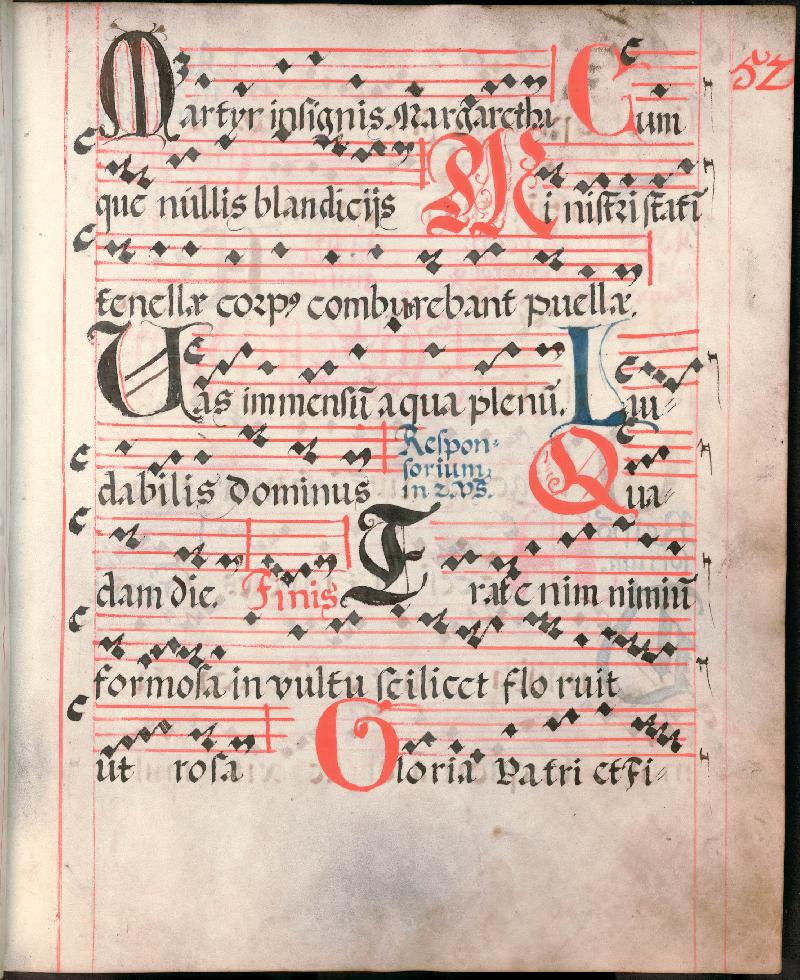 52
Martyr insignis Margaretha Cum
que nullis blandicijs Ministri statī
tenellæ corpꝰ comburebant puellæ.
Uas immensū aqua plenū. Lau⸗
dabilis dominus Respon⸗
sorium
in 2. vs̄. Qua⸗
dam die. Finis Erat e nim nimiū
formosa in vultu scilicet flo ruit
ut rosa Gloria Patri et Fi⸗